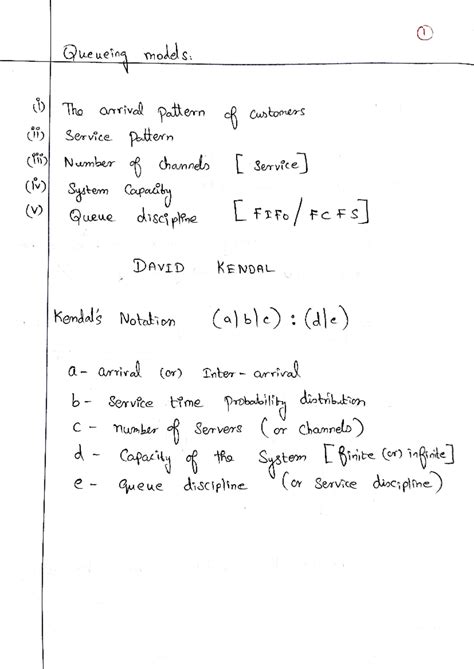 1
Queueing models:
(i) The arrival pattern of customers
(ii) Service Pattern
(iii) Number of channels [Service]
(iv) System Capacity
(v) Queue discipline [FIFO/FCFS]
DAVID KENDAL
Kendal's Notation (a|b|c) : (d|e)
a - arrival (or) Inter-arrival
b - Service time Probability distribution
c - number of Servers (or channels)
d - Capacity of the System [finite (or) infinite]
e - queue discipline (or Service discipline)